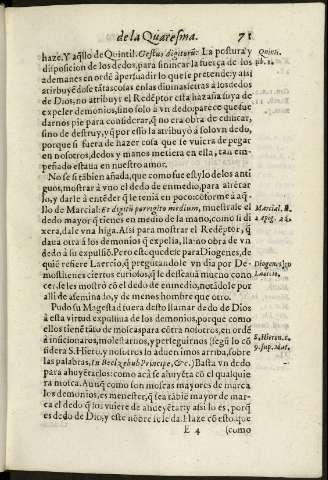 de la Quaresma. 71
haze. Y aq̃llo de Quintil. Gestus digitorũ: La postura y
disposicion de los dedos, para sinificar la fuerça de los
ademanes en ordẽ a persuadir lo que se pretende: y assi
atribuyẽ dose tãtas cosas en las diuinas letras a los dedos
de Dios, no atribuyr el Redẽptor esta hazaña suya de
expeler demonios, sino solo a vn dedo parece que fue
darnos pie para considerar, q̃ no era obra de edificar,
sino de destruyr, y q̃ por esso la atribuyò a solo vn dedo,
porque si fuera de hazer cosa que le vuiera de pegar
en nosotros, dedos y manos metiera en ella, tan em-
peñado estaua en nuestro amor.
No se si tãbien añada, que como fue estylo de los anti
guos, mostrar à vno el dedo de enmedio, para afrẽtar
lo, y darle à entẽder q̃ le teniã en poco: cõforme à aq̃
llo de Marcial: Et digitũ porrigito medium, muestrale el
dedo mayor q̃ tienes en medio de la mano, como si di
xera, dale vna higa. Assi para mostrar el Redẽptor, q̃
daua otra à los demonios q̃ expelia, llama obra de vn
dedo à su expulsiõ. Pero esto quedese para Diogenes, de
quiẽ refiere Laercio, q̃ preguntãdole vn dia por De-
mosthenes ciertos curiosos, q̃ le desseauã mucho cono
cer: se les mostrò cõ el dedo de enmedio, notãdole por
alli de afeminado, y de menos hombre que otro.
Pudo su Magestad fuera desto llamar dedo de Dios
à esta virtud expulsiua de los demonios, porque como
ellos tienẽ tãto de moscas para cõtra nosotros, en ordẽ
à inficionarnos, molestarnos, y perseguirnos (segũ lo cõ
sidera S. Hiero, y nosotros lo aduertimos arriba, sobre
las palabras, In Beelzebub Principe, &c.) Basta vn dedo
para ahuyẽtarlos: como acà se ahuyẽta cõ el qualquie
ra mosca. Aunq̃ como son moscas mayores de marca
los demonios, es menester, q̃ sea tãbiẽ mayor de mar-
ca el dedo q̃ los vuiere de ahuyẽtar: y assi lo es, porq̃
es dedo de Dios, y este nõbre se le da. Haze cõ esto, que
E 4 (como
Quinti.
Marcial. 8.
Diogenes
Laercio.
S. Hieron. c.